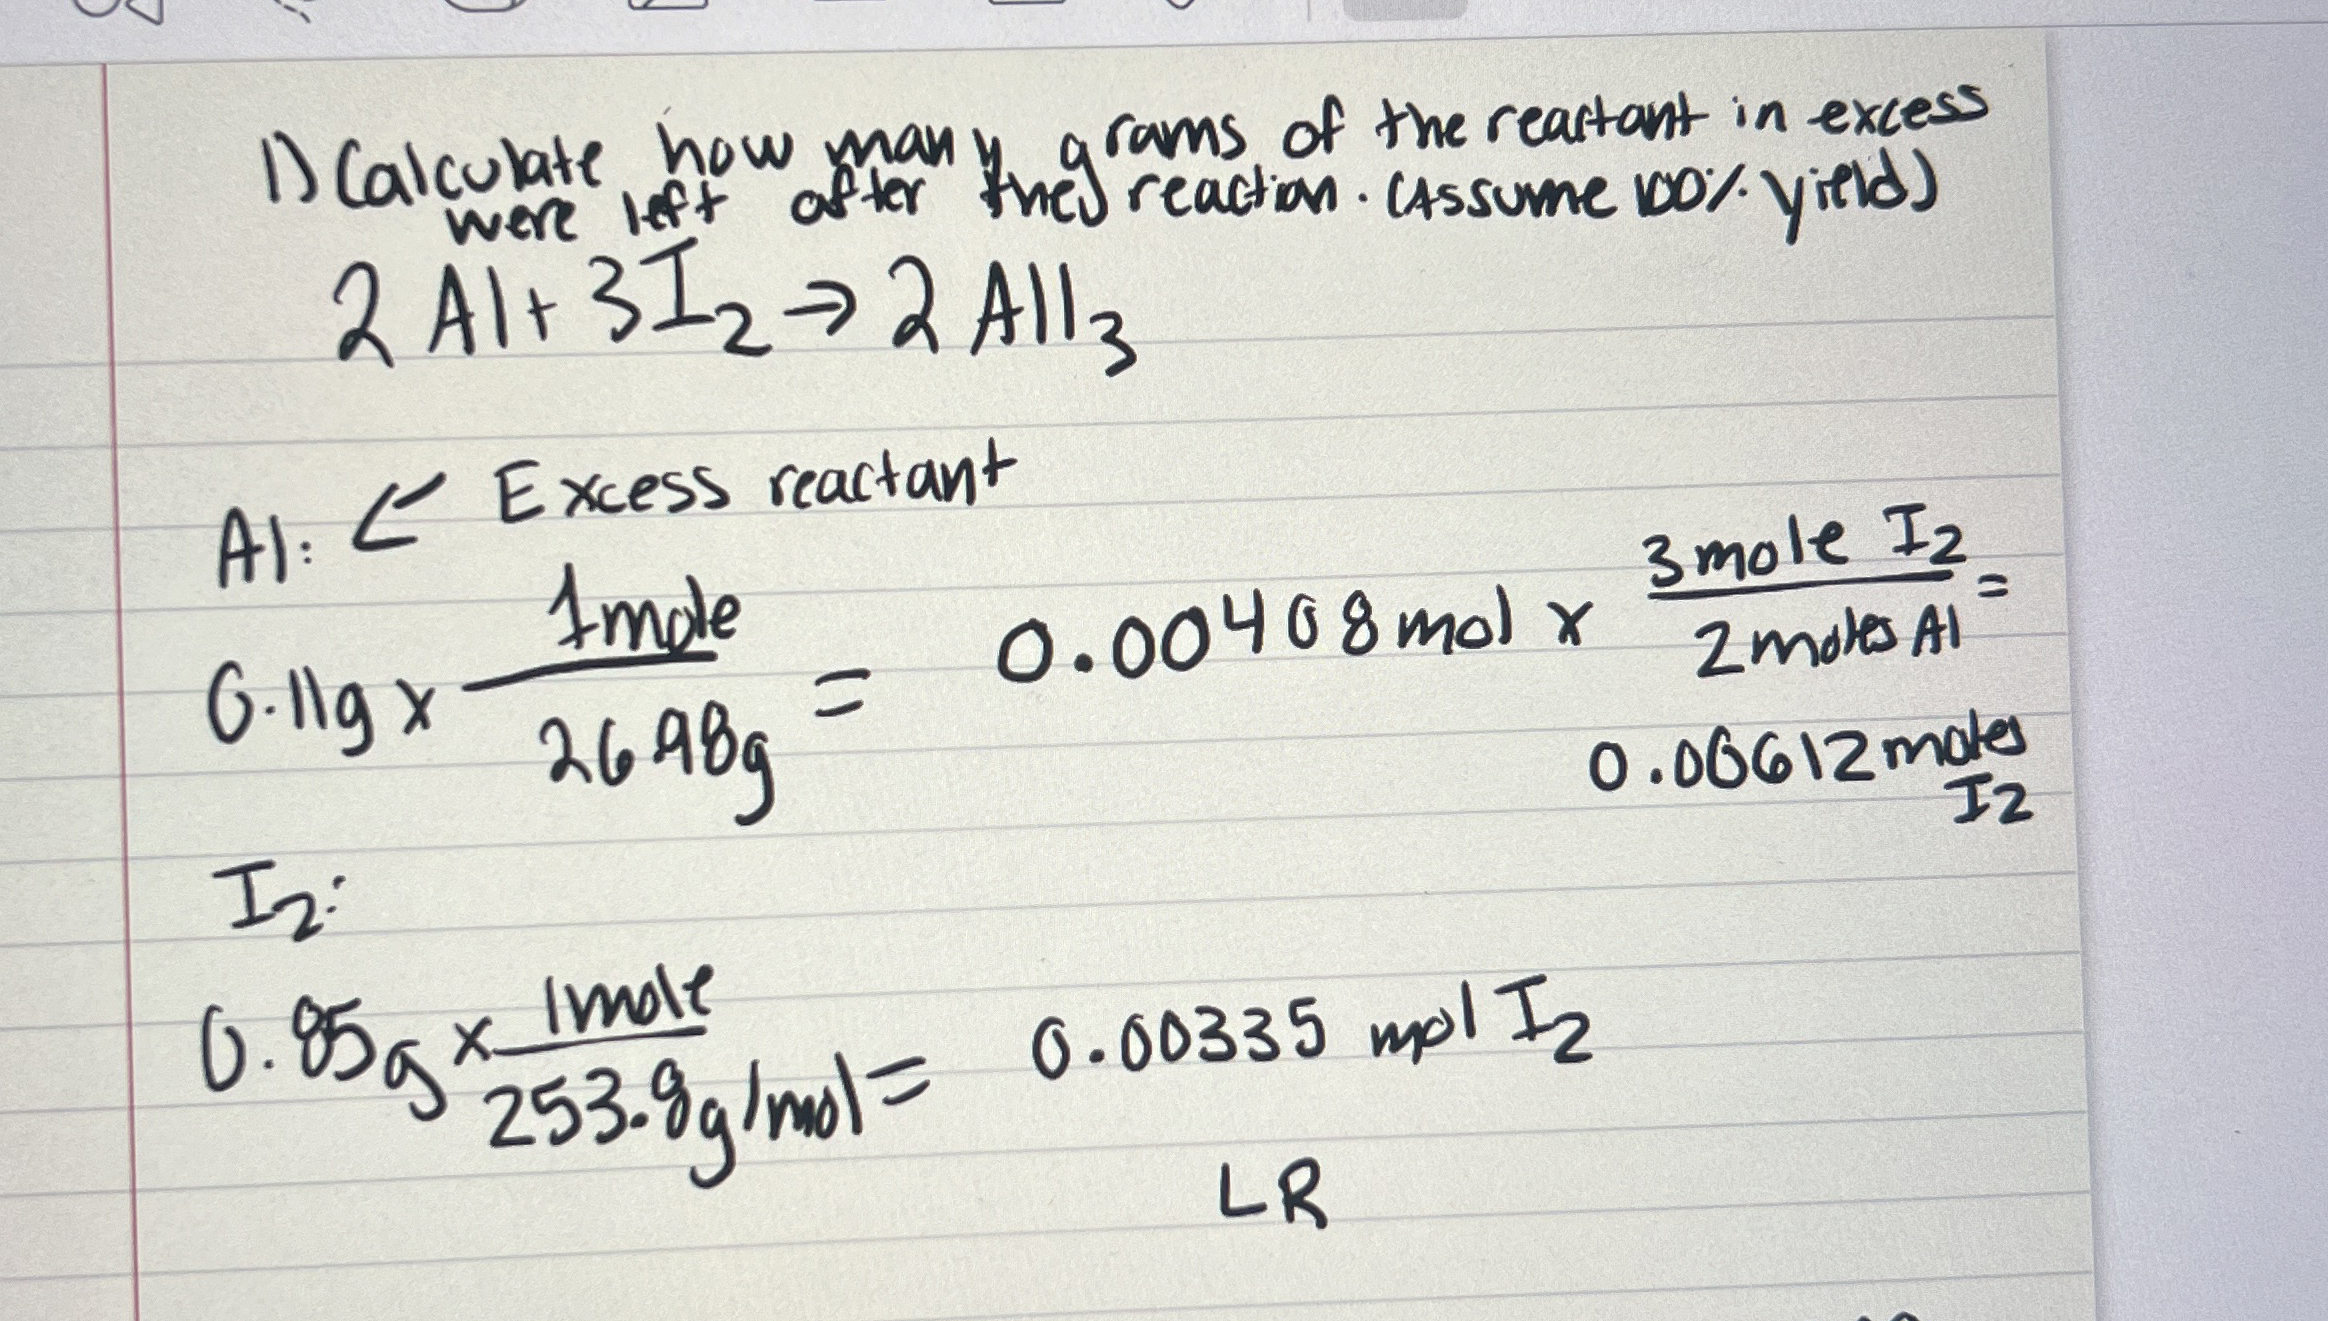 1) Calculate how many grams of the reactant in excess
were left after the reaction. (Assume 100% yield)
2 Al + 3I2 → 2 AlI3
Al: ← Excess reactant
0.11g x 1mole / 26.98g = 0.00408 mol x 3 mole I2 / 2 moles Al =
0.00612 moles
I2
I2:
0.85g x 1mole / 253.8g/mol = 0.00335 mol I2
LR